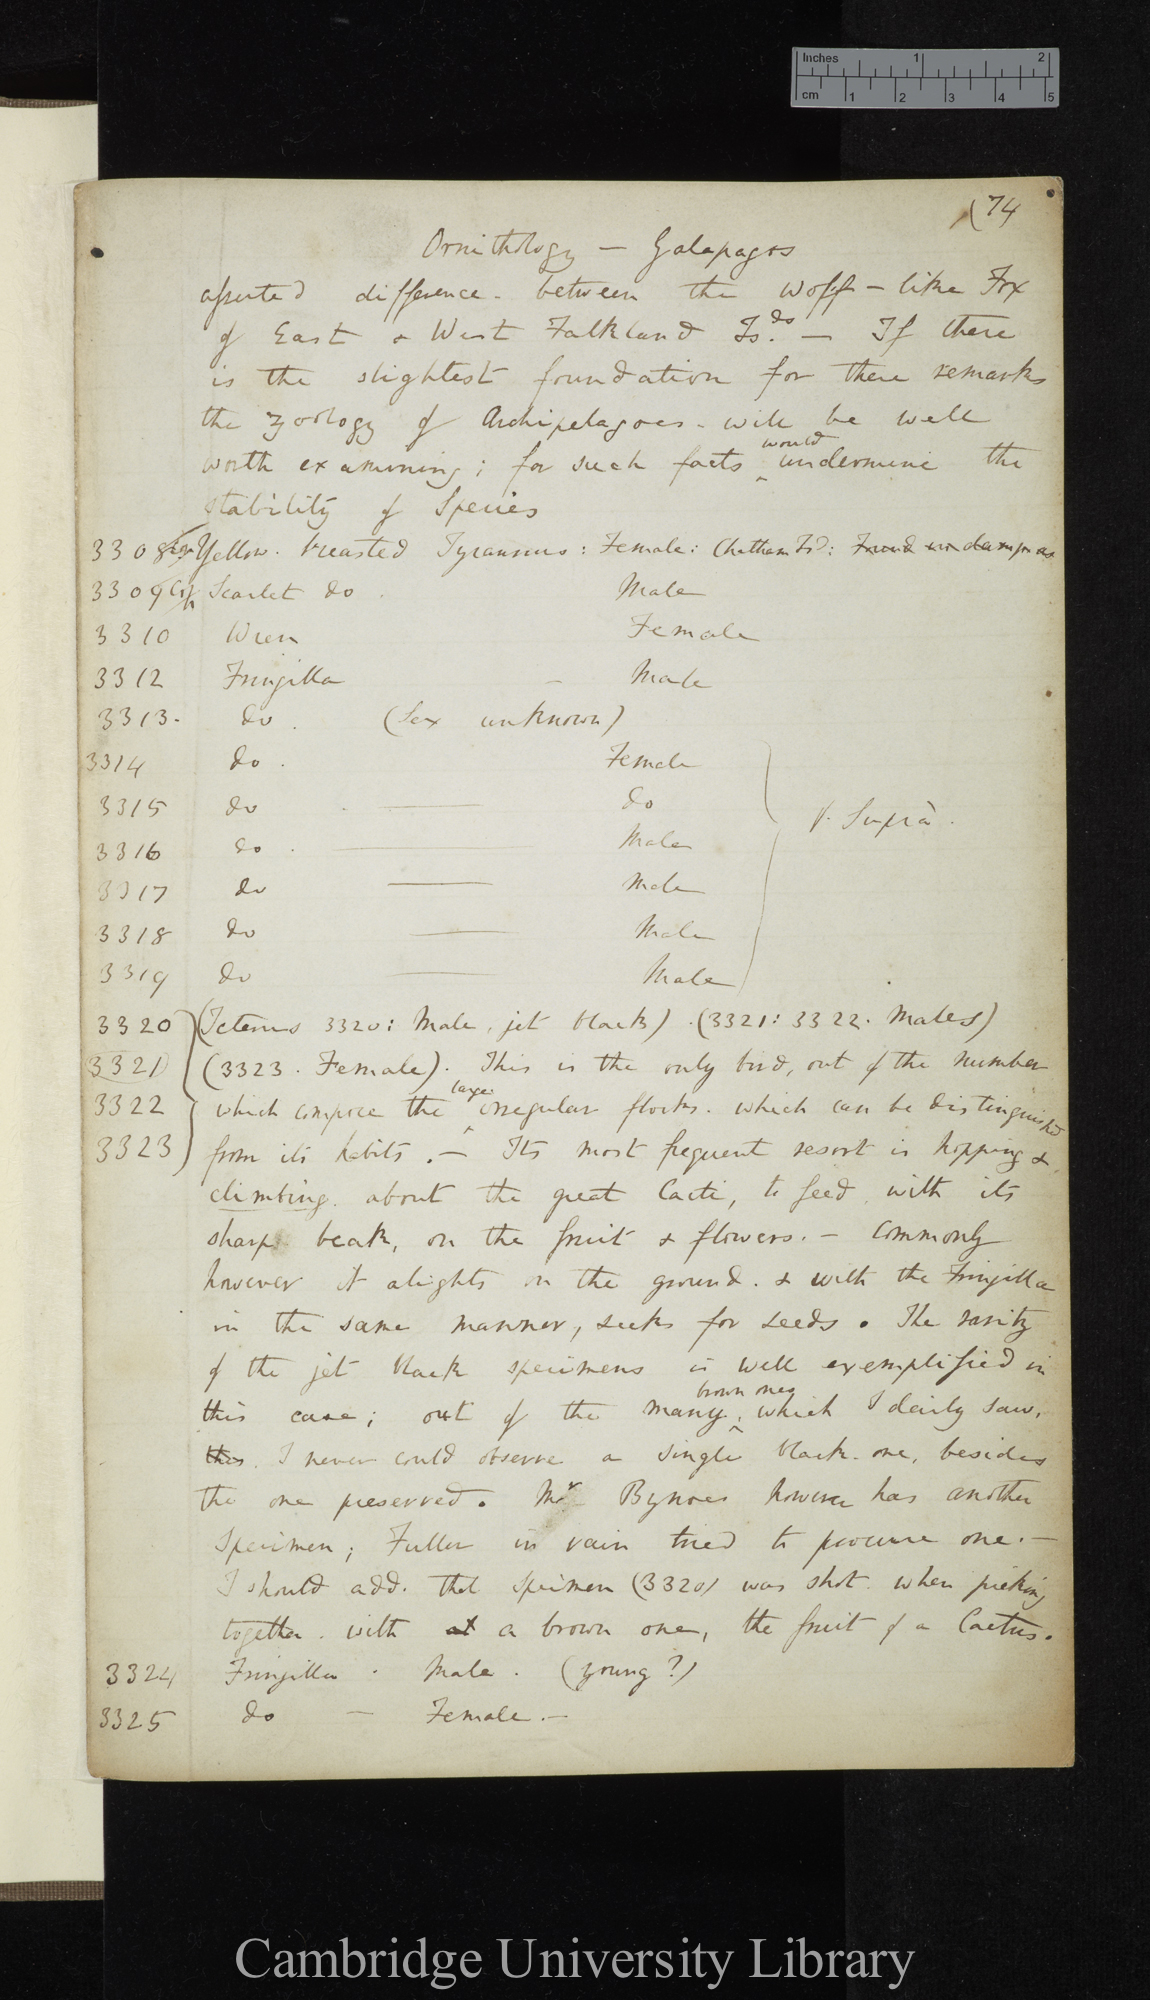 Inches 1 2
cm 1 2 3 4 5
(74
Ornithology — Galapagos
asserted difference. between the wolf-like Fox
of East & West Falkland Isds. — If there
is the slightest foundation for these remarks
the zoology of Archipelagoes. will be well
worth examining; for such facts would undermine the
stability of Species
3308 Yellow. breasted Tyrannus: Female: Chatham Isd:
3309 Scarlet do Male
3310 Wren Female
3312 Fringilla — Male
3313. do. (Sex unknown)
3314 do. Female
3315 do — do
3316 do. — Male
V. Supra.
3317 do — Male
3318 do — Male
3319 do — Male
3320 (Icterus 3320: Male, jet black). (3321: 3322. Males)
3321 (3323. Female). This is the only bird, out of the number
3322 which compose the large irregular flocks. which can be distinguished
3323 from its habits. — Its most frequent resort is hopping &
climbing about the great Cacti, to feed with its
sharp beak, on the fruit & flowers. — Commonly
however it alights on the ground. & with the Fringilla
in the same manner, seeks for seeds. The rarity
of the jet black specimens is well exemplified in
this case; out of the many brown ones which I daily saw,
this. I never could observe a single black. one, besides
the one preserved. Mr Bynoes however has another
Specimen; Fuller in vain tried to procure one. —
I should add. that Specimen (3320) was shot. when picking
together. with at a brown one, the fruit of a Cactus.
3324 Fringilla. Male. (young?)
3325 do — Female. —
Cambridge University Library